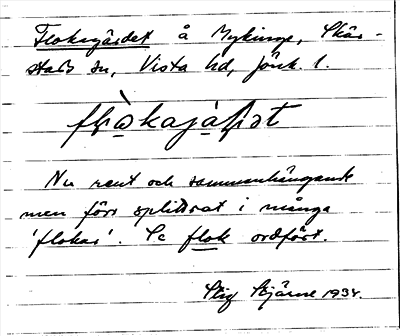 Flokagärdet å Mykinge, Skär-
stads sn, Vista hd, Jönk. l.
Nu rent och sammanhängande
men förr splittrat i många
'flokar'. Se flok ordföst.
Stig Bjärne 1934.